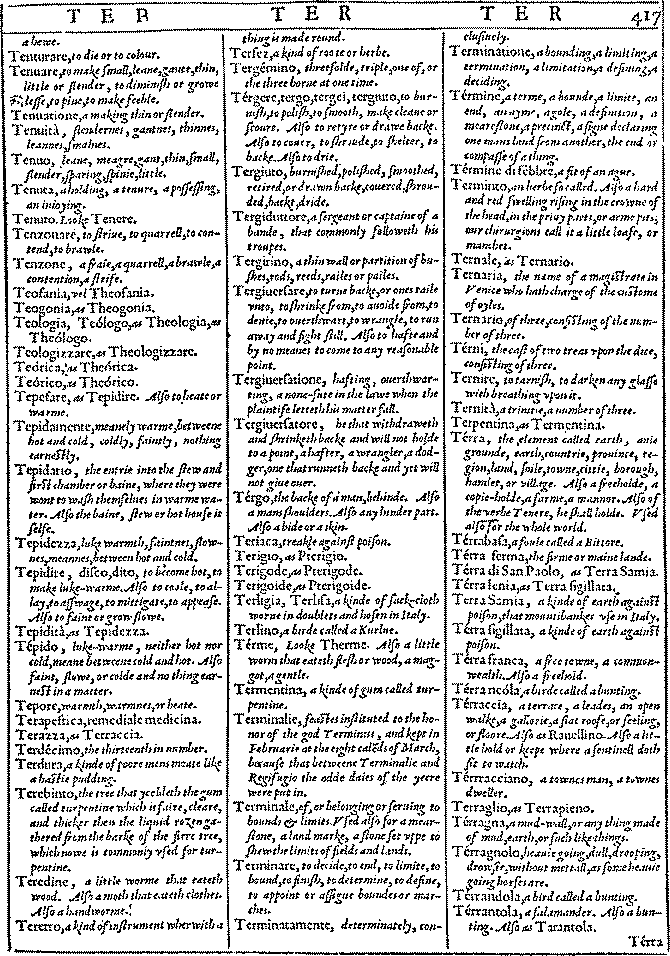 T E B T E R T E R 417
a hewe.
Tenturare, to die or to colour.
Tenuare, to make ſmall, leane, gante, thin,
little or ſlender, to diminiſh or growe
leſſe, to pine, to make feeble.
Tenuatione, a making thin or ſlender.
Tenuità, ſlendernes, gantnes, thinnes,
leannes, ſmalnes.
Tenuo, leane, meagre, gant, thin, ſmall,
ſlender, ſparing, ſpinie, little.
Tenuta, a holding, a tenure, a poſſeſſing,
an inioying.
Tenuto. Looke Tenere.
Tenzonare, to ſtriue, to quarrell, to con-
tend, to brawle.
Tenzone, a fraie, a quarrell, a brawle, a
contention, a ſtrife.
Teofania, vel Theofania.
Teogonia, as Theogonia.
Teologia, Teólogo, as Theologia, as
Theólogo.
Teologizzare, as Theologizzare.
Teórica, as Theórica.
Teórico, as Theórico.
Tepefare, as Tepidire. Alſo to heate or
warme.
Tepidamente, meanely warme, betweene
hot and cold, coldly, faintly, nothing
earneſtly.
Tepidario, the entrie into the ſtew and
firſt chamber or baine, where they were
wont to waſh themſelues in warme wa-
ter. Alſo the baine, ſtew or hot houſe it
ſelfe.
Tepidezza, luke warmth, faintnes, ſlow-
nes, meannes, between hot and cold.
Tepidire, diſco, dito, to become hot, to
make luke-warme. Alſo to eaſe, to al-
lay, to aſſwage, to mittigate, to appeaſe.
Alſo to faint or grow ſlowe.
Tepidità, as Tepidezza.
Tépido, luke-warme, neither hot nor
cold, meane betweene cold and hot. Alſo
faint, ſlowe, or colde and no thing ear-
neſt in a matter.
Tepore, warmth, warmnes, or heate.
Terapeſtica, remediale medicina.
Terazza, as Terraccia.
Terdécimo, the thirteenth in number.
Terdura, a kinde of poore mens meate like
a haſtie pudding.
Terebinto, the tree that yeeldeth the gum
called turpentine which is faire, cleare,
and thicker then the liquid rozen ga-
thered from the barke of the firre tree,
which nowe is commonly vſed for tur-
pentine.
Teredine, a little worme that eateth
wood. Alſo a moth that eateth clothes.
Alſo a handworme.
Teretro, a kind of inſtrument wherwith a
thing is made round.
Terfez, a kind of roote or herbe.
Tergémino, threefolde, triple, one of, or
the three borne at one time.
Térgere, tergo, tergei, terguto, to bur-
niſh, to poliſh, to ſmooth, make cleane or
ſcoure. Alſo to retyre or drawe backe.
Alſo to couer, to ſhrude, to ſhelter, to
backe. Alſo to drie.
Tergiuto, burniſhed, poliſhed, ſmoothed,
retired, or drawn backe, couered, ſhrou-
ded, backt, dride.
Tergiduttore, a ſergeant or captaine of a
bande, that commonly followeth his
troupes.
Tergirino, a thin wall or partition of bu-
ſhes, rods, reeds, railes or pailes.
Tergiuerſare, to turne backe, or ones taile
vnto, to ſhrinke from, to auoide from, to
denie, to ouerthwart, to wrangle, to run
away and fight ſtill. Alſo to hafte and
by no meanes to come to any reaſonable
point.
Tergiuerſatione, hafting, ouerthwar-
ting, a none-ſute in the lawes when the
plaintife letteth his matter fall.
Tergiuerſatore, he that withdraweth
and ſhrinketh backe and will not holde
to a point, a hafter, a wrangler, a dod-
ger, one that runneth back and yet will
not giue ouer.
Térgo, the backe of a man, behinde. Alſo
a mans ſhoulders. Alſo any hinder part.
Alſo a hide or a ſkin.
Teriaca, treakle againſt poiſon.
Terigio, as Pterigio.
Terigode, as Pterigode.
Terigoide, as Pterigoide.
Terligia, Terliſa, a kinde of ſack-cloth
worne in doublets and hoſen in Italy.
Terlino, a birde called a Kurlue.
Térme, Looke Therme. Alſo a little
worm that eateth fleſh or wood, a mag-
got, a gentle.
Termentina, a kinde of gum called tur-
pentine.
Terminalie, feaſtes inſtituted to the ho-
nor of the god Terminus, and kept in
Februarie at the eight calẽds of March,
becauſe that betweene Terminalie and
Regifugio the odde daies of the yeere
were put in.
Terminale, of, or belonging or ſeruing to
bounds & limits. Vſed alſo for a mear-
ſtone, a land marke, a ſtone ſet vpp to
ſhew the limits of fields and lands.
Terminare, to decide, to end, to limite, to
bound, to finiſh, to determine, to define,
to appoint or aſſigne boundes or mar-
ches.
Terminatamente, determinately, con-
cluſiuely.
Terminatione, a bounding, a limiting, a
termination, a limitation, a defining, a
deciding.
Términe, a terme, a bounde, a limite, an
end, an ayme, a gole, a definition, a
meareſtone, a precinct, a ſigne declaring
one mans land from another, the end or
compaſſe of a thing.
Términe di fébbre, a fit of an ague.
Termínto, an herbe ſo called. Alſo a hard
and red ſwelling riſing in the crowne of
the head, in the priuy parts, or arme pits;
our chirurgions call it a little loafe, or
mammet.
Ternale, as Ternario.
Ternaria, the name of a magiſtrate in
Venice who hath charge of the cuſtome
of oyles.
Ternario, of three, conſiſting of the num-
ber of three.
Térni, the caſt of two treas vpon the dice,
conſiſting of three.
Ternire, to tarniſh, to darken any glaſſe
with breathing vpon it.
Ternità, a trinitie, a number of three.
Terpentina, as Termentina.
Térra, the element called earth, anie
grounde, earth, countrie, prouince, re-
gion, land, ſoile, towne, cittie, borough,
hamlet, or village. Alſo a freeholde, a
copie-holde, a farme, a mannor. Alſo of
the verbe Tenere, he ſhall holde. Vſed
alſo for the whole world.
Térrabaſa, a foule called a Bittore.
Térra ferma, the firme or maine lande.
Térra di San Paolo, as Terra Samia.
Térra lenia, as Terra ſigillata.
Térra Samia, a kinde of earth againſt
poiſon, that mountibankes vſe in Italy.
Térra ſigillata, a kinde of earth againſt
poiſon.
Térra franca, a free towne, a common-
wealth. Alſo a freehold.
Térraneóla, a birde called a bunting.
Térraccia, a terrace, a leades, an open
walke, a gallerie, a flat roofe, or ſeeling,
or floore. Alſo as Rauellino. Alſo a lit-
tle hold or keepe where a ſentinell doth
ſit to watch.
Térracciano, a townes man, a townes
dweller.
Térraglio, as Terrapieno.
Térragna, a mud-wall, or any thing made
of mud, earth, or ſuch like things.
Térragnolo, heauie going, dull, drooping,
drowſie, without mettall, as ſome heauie
going horſes are.
Térrandola, a bird called a bunting.
Térrantola, a ſalamander. Alſo a bun-
ting. Alſo as Tarantola.
Térra